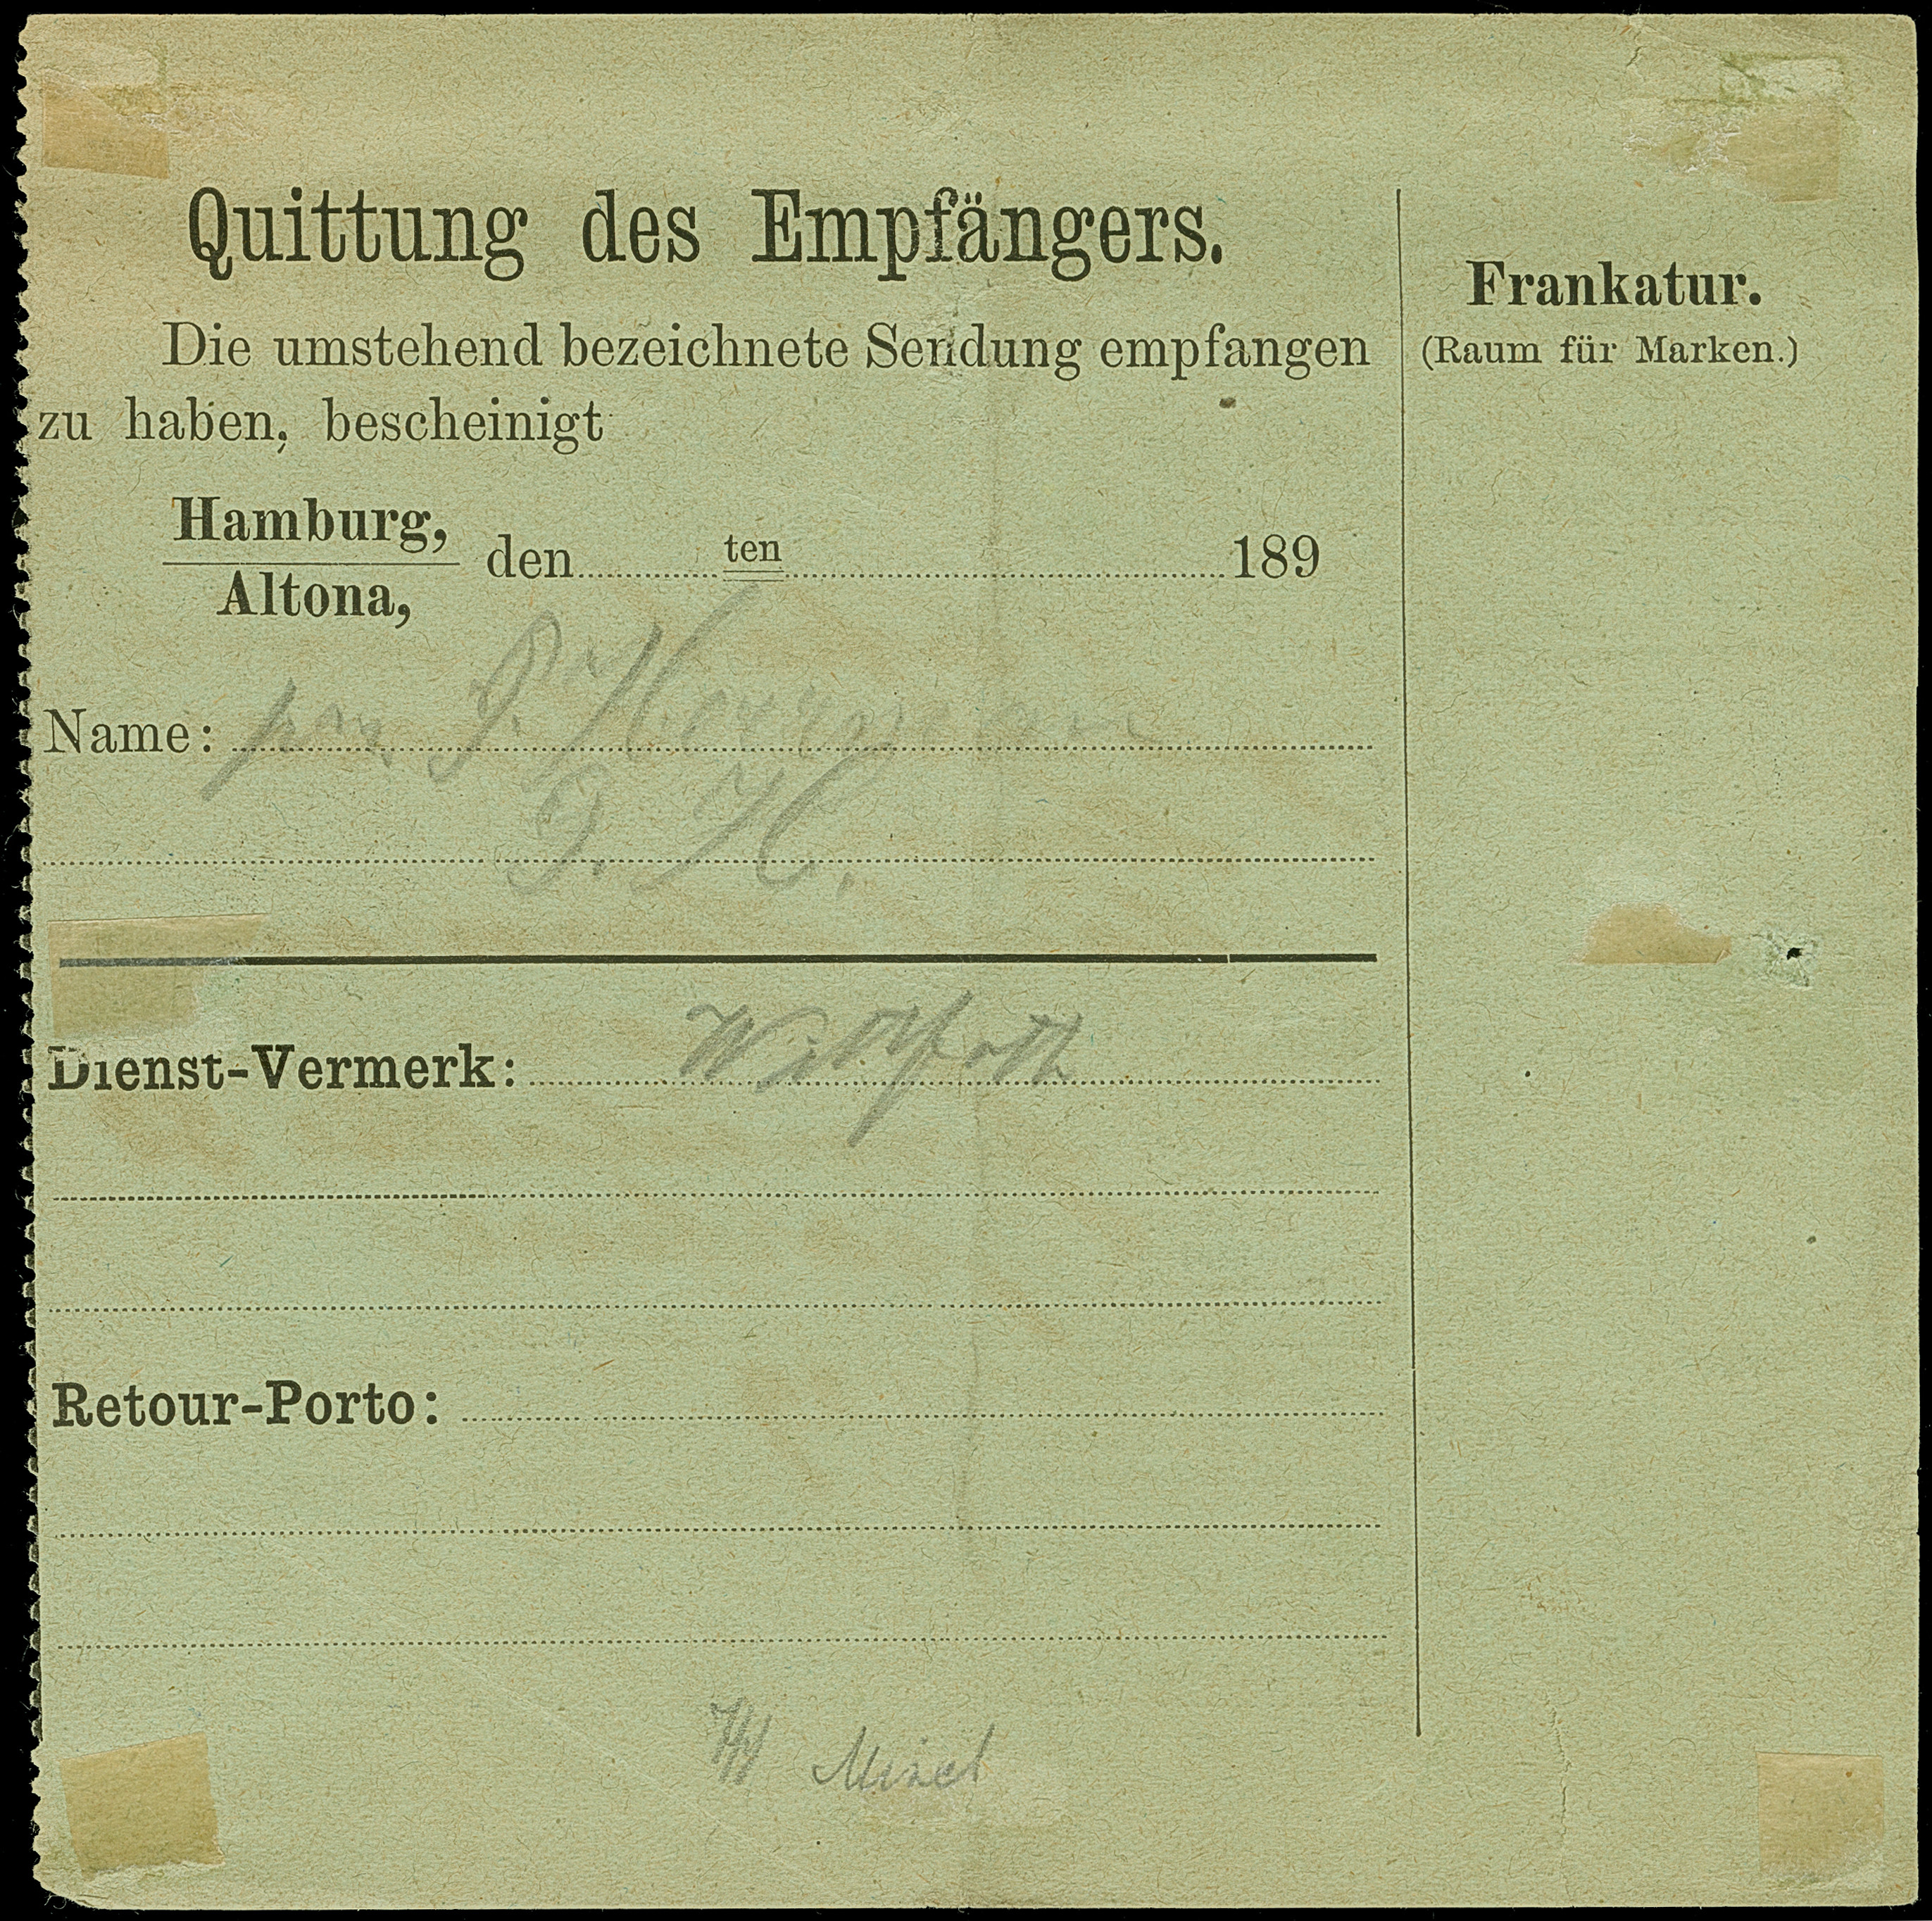 Quittung des Empfängers.
Die umstehend bezeichnete Sendung empfangen
zu haben, bescheinigt
Hamburg,
Altona,
den ten 189
Name: P.
P. H.
Dienst-Vermerk:
Retour-Porto:
Frankatur.
(Raum für Marken.)